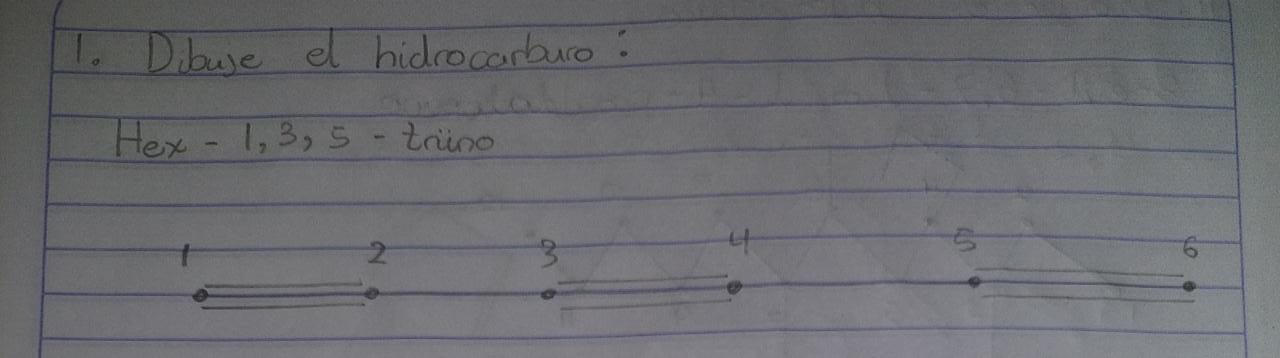 1. Dibuje el hidrocarburo:
Hex - 1, 3, 5 - triino
1 2 3 4 5 6